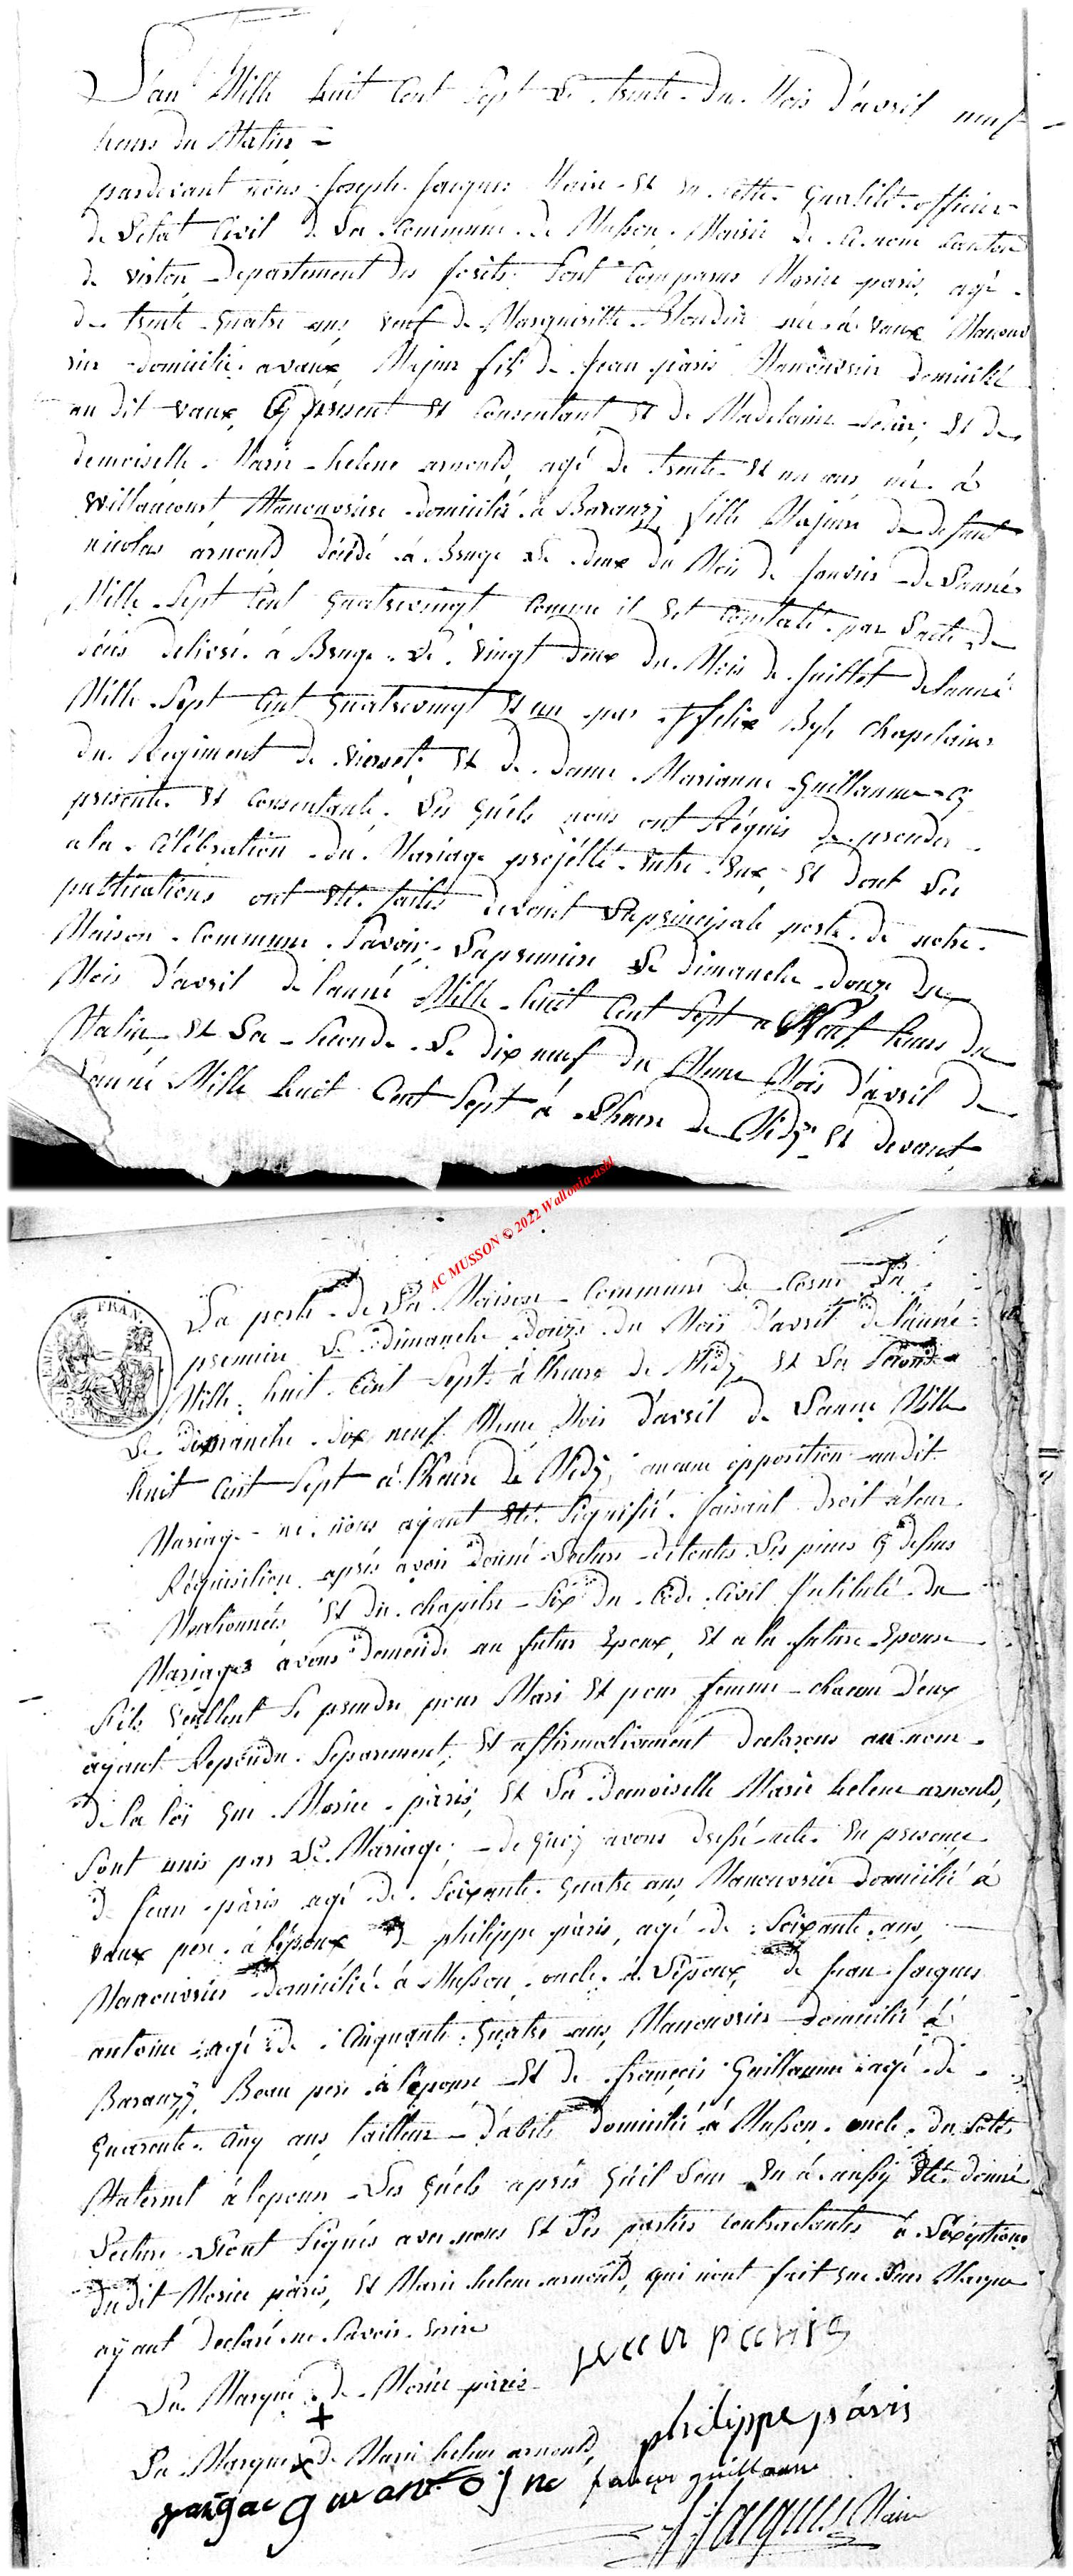 L'an Mille huit Cent Sept Le trente du Mois d'avril neuf
heures du Matin =
pardevant nous Joseph Jacques Maire Et en Cette qualité officier
de L'etat Civil de La Commune de Musson, Mairie de Ce nom Canton
de virton Departement des forêts, Sont Comparus Morice paris, agé
de trente quatre ans, veuf de Margueritte Blondin né à vaux Manouv
rier domicilié a vaux, Majeur fils de Jean pàris Manouvrier domicilié
au dit vaux, Cy present Et Consentant Et de Madelaine, Et de
demoiselle Marie helene arnould, agé de trente Et un ans né à
Willancourt Manouvriere domicilié à Baranzy fille Majeure de defunt
nicolas arnould, décédé à Bruge Le deux du Mois de Janvier de L'année
Mille Sept Cent quatrevingt Comme il Est Constaté par L'acte de
décés delivré à Bruge Le vingt deux du Mois de Juillet de l'anné
Mille Sept Cent quatrevingt Et un par felix chapelain
du Regiment de vierset, Et de dame Marianne Guillaume Cy
presente Et Consentante. Les quels nous ont Réquis de proceder
a la Célébration du Mariage projetté entre Eux, Et dont Les
publications ont Eté faites devant La principale porte de notre
Maison Commune Savoir, La premiere Le dimanche douze du
Mois d'avril de l'anné Mille huit Cent Sept a Neuf heures du
Matin, Et La Seconde Le dix neuf du Meme Mois d'avril de
L'anné Mille huit Cent Sept à L'heure de Midy Et devant
AC MUSSON © 2022 Wallonia-asbl
EMPIRE FRAN.
La porte de La Maison Commune de Cosne La
premiere Le dimanche douze du Mois d'avril de l'anné
Mille huit Cent Sept à l'heure de Midy, Et La Seconde
Le dimanche dix neuf Meme Mois d'avril de L'anné Mille
huit Cent Sept à L'heure de Midy, aucune opposition audit
Mariage ne nous ayant Eté Signifié. faisant droit à leur
Réquisition après avoir donné Lecture de toutes Les pieces Cy dessus
Mentionnées Et du chapitre Six du Code Civil Intitulé du
Mariages avons demendé au futur Epoux, Et a la future Epouse
S'ils veullent Se prendre pour Mari Et pour femme chacun d'eux
ayant Repondu Separement, Et affirmativement declarons au nom
de la loi que Morice pàris, Et La demoiselle Marie helene arnould,
Sont unis par Le Mariage, de quoy avons dressé acte En presence
de Jean pàris agé de Soixante quatre ans, Manouvrier domicilié à
vaux pere à l'époux, de philippe pàris, agé de Soixante ans,
Manouvrier domicilié à Musson, oncle à L'époux, de Jean Jacques
antoine agé de Cinquante quatre ans, Manouvrier domicilié à
Baranzy, Beau pere à l'epouse Et de françois Guillaume agé de
quarente Cinq ans tailleur d'abits domicilié à Musson, oncle du Coté
Maternel à l'epouse Les quels après qu'il Leur En à aussy Eté donné
Lecture L'ont Signés avec nous Et Les parties Contractantes à L'éxéption
du dit Morice pàris, Et Marie helene arnould, qui n'ont fait que Leur Marque
ayant declaré ne Savoir Ecrire
La Marque de Morice pàris
+
jean paris
La Marque x de Marie helene arnould,
philippe pàris
francois guillaume
J Jacques Maire